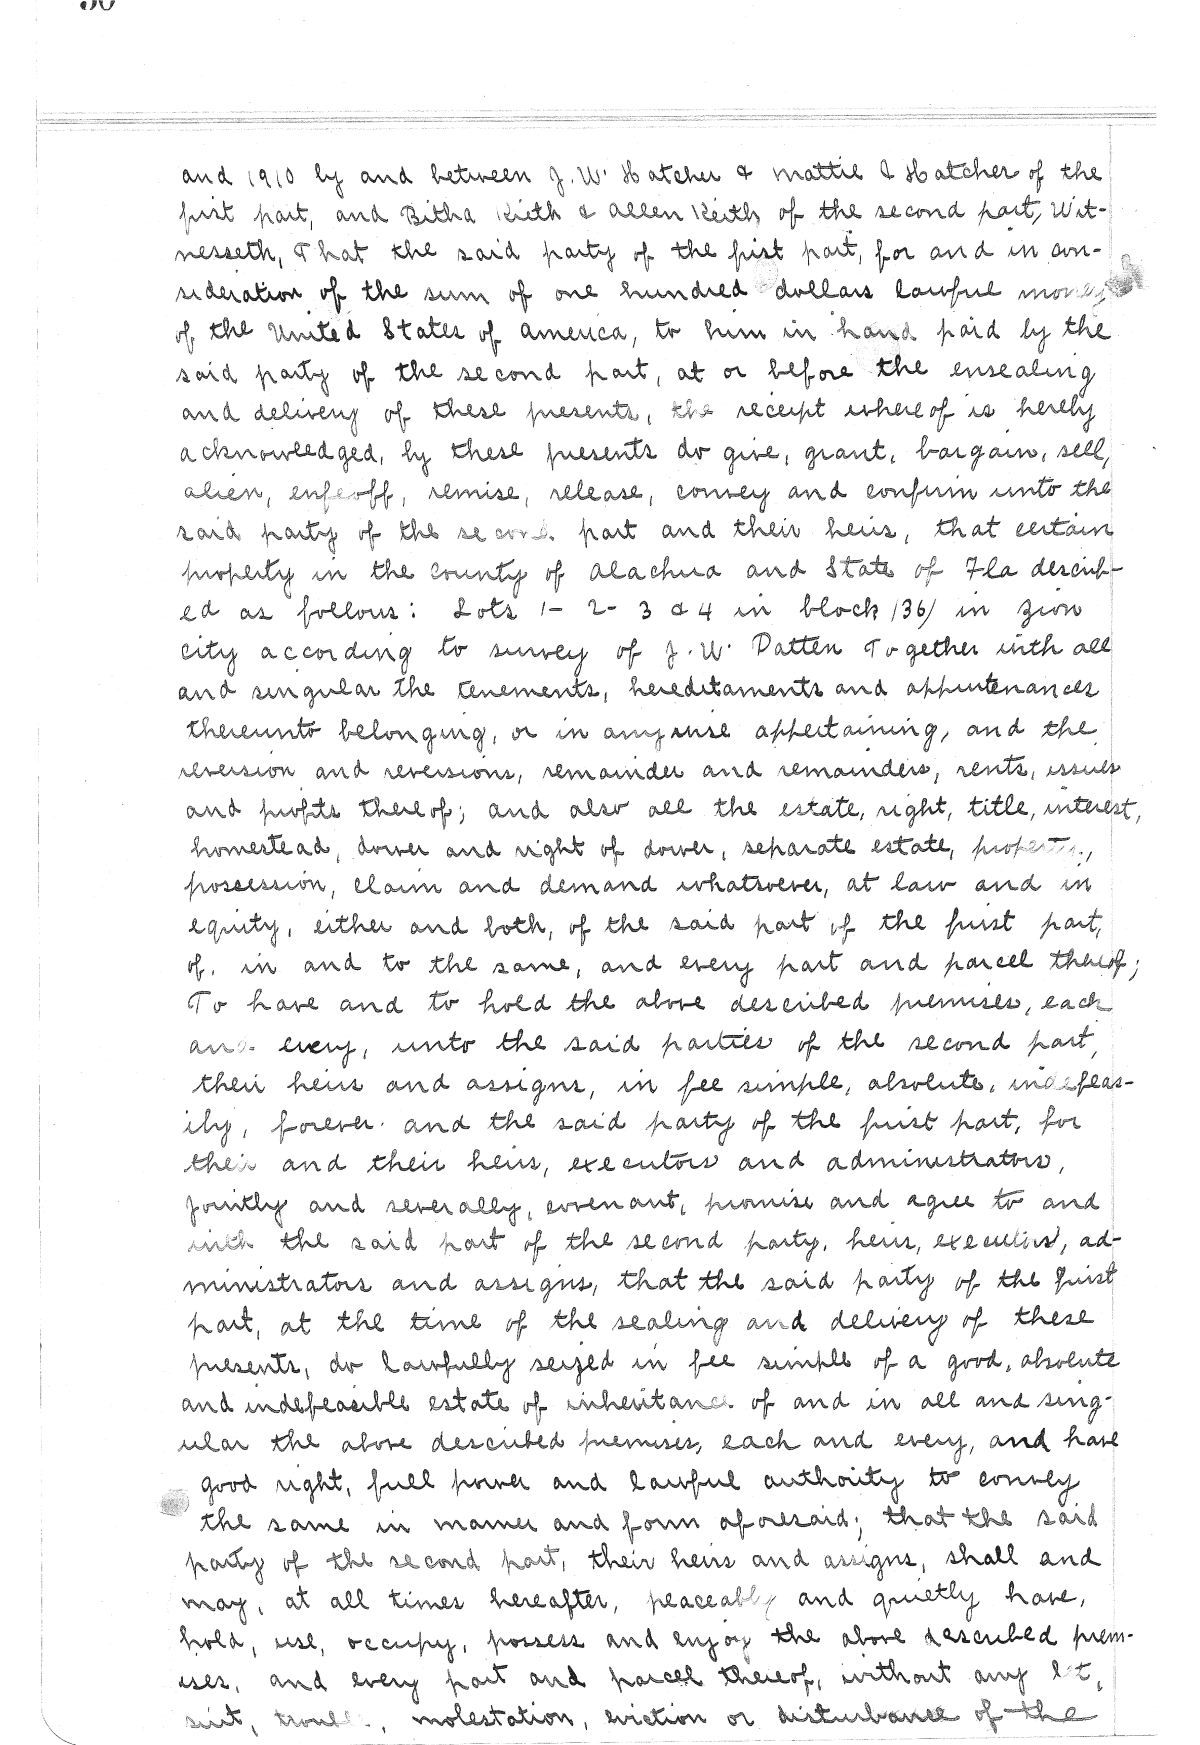 and 1910 by and between J. W. Hatcher & Mattie I Hatcher of the
first part, and Bitha Kieth & Allen Keith of the second part, Wit-
nesseth, That the said party of the first part, for and in con-
sideration of the sum of one hundred dollars lawful money
of the United States of America, to him in hand paid by the
said party of the second part, at or before the ensealing
and delivery of these presents, the receipt whereof is hereby
acknowledged, by these presents do give, grant, bargain, sell,
alien, enfeoff, remise, release, convey and confirm unto the
said party of the second part and their heirs, that certain
property in the County of Alachua and State of Fla describ-
ed as follows: Lots 1- 2- 3 & 4 in block /36/ in Zion
city according to survey of J. W. Patten Together with all
and singular the tenements, hereditaments and appurtenances
thereunto belonging, or in anywise appertaining, and the
reversion and reversions, remainder and remainders, rents, issues
and profits thereof; and also all the estate, right, title, interest,
homestead, dower and right of dower, separate estate, property,
possession, claim and demand whatsoever, at law and in
equity, either and both, of the said part of the first part,
of, in and to the same, and every part and parcel thereof;
To have and to hold the above described premises, each
and every, unto the said parties of the second part,
their heirs and assigns, in fee simple, absolute, indefeas-
ily, forever. and the said party of the first part, for
their and their heirs, executors and administrators,
jointly and severally, covenant, promise and agree to and
with the said part of the second party, heirs, executors, ad-
ministrators and assigns, that the said party of the first
part, at the time of the sealing and delivery of these
presents, do lawfully seized in fee simple of a good, absolute
and indefeasible estate of inheritance of and in all and sing-
ular the above described premises, each and every, and have
good right, full power and lawful authority to convey
the same in manner and form aforesaid; that the said
party of the second part, their heirs and assigns, shall and
may, at all times hereafter, peaceably and quietly have,
hold, use, occupy, possess and enjoy the above described prem-
ises, and every part and parcel thereof, without any let,
suit, trouble, molestation, eviction or disturbance of the